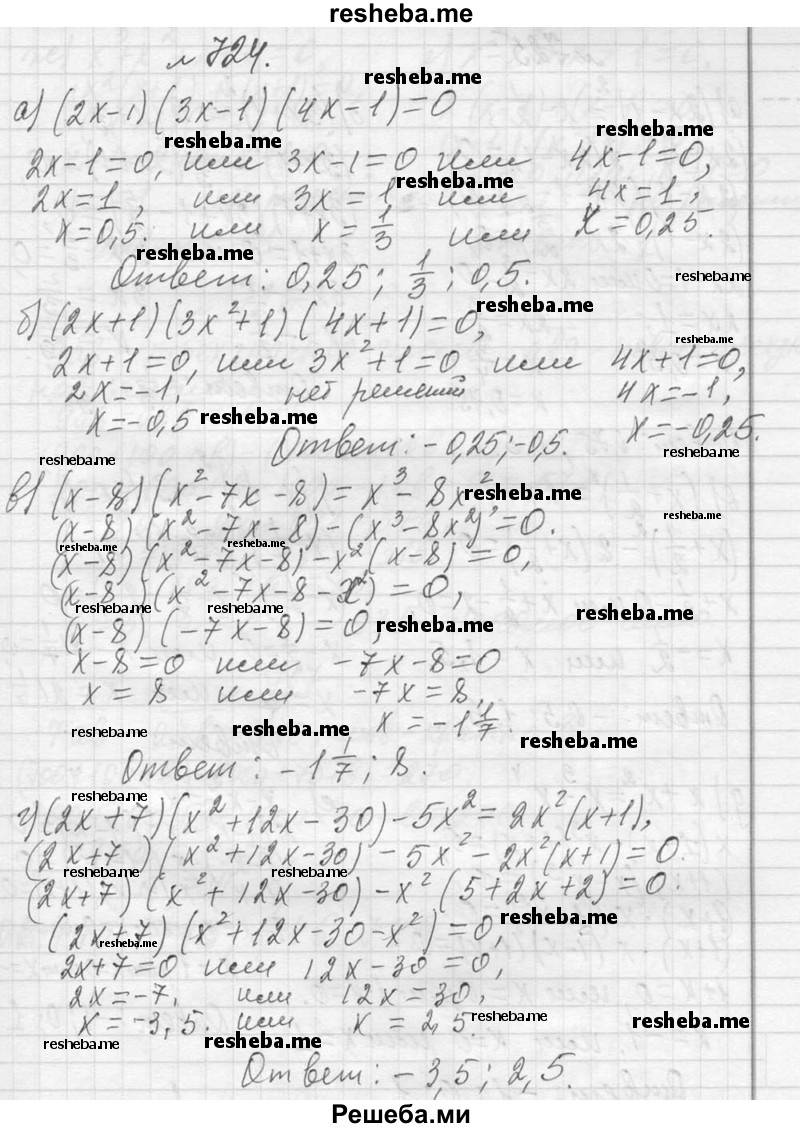 resheba.me
№ 724.
resheba.me
а) (2x-1)(3x-1)(4x-1)=0
resheba.me resheba.me
2x-1=0, или 3x-1=0 или 4x-1=0,
resheba.me
2x=1, или 3x=1 или 4x=1,
x=0,5. или x=1/3 или x=0,25.
resheba.me
Ответ: 0,25; 1/3; 0,5. resheba.me
resheba.me
б) (2x+1)(3x²+1)(4x+1)=0,
resheba.me
2x+1=0, или 3x²+1=0 или 4x+1=0,
2x=-1, нет решений 4x=-1,
x=-0,5 resheba.me x=-0,25.
Ответ: -0,25; -0,5.
resheba.me resheba.me
в) (x-8)(x²-7x-8)=x³-8x², resheba.me
(x-8)(x²-7x-8)-(x³-8x²)=0. resheba.me
resheba.me resheba.me
(x-8)(x²-7x-8)-x²(x-8)=0,
(x-8)(x²-7x-8-x²)=0,
resheba.me resheba.me resheba.me
(x-8)(-7x-8)=0, resheba.me
x-8=0 или -7x-8=0
x=8 или -7x=8,
resheba.me resheba.me x=-1 1/7.
resheba.me
Ответ: -1 1/7; 8.
resheba.me
г) (2x+7)(x²+12x-30)-5x²=2x²(x+1),
(2x+7)(x²+12x-30)-5x²-2x²(x+1)=0.
resheba.me resheba.me
(2x+7)(x²+12x-30)-x²(5+2x+2)=0.
resheba.me
(2x+7)(x²+12x-30-x²)=0,
resheba.me
2x+7=0 или 12x-30=0,
2x=-7, или 12x=30,
x=-3,5. или x=2,5. resheba.me resheba.me
resheba.me resheba.me
Ответ: -3,5; 2,5.
Решеба.ми